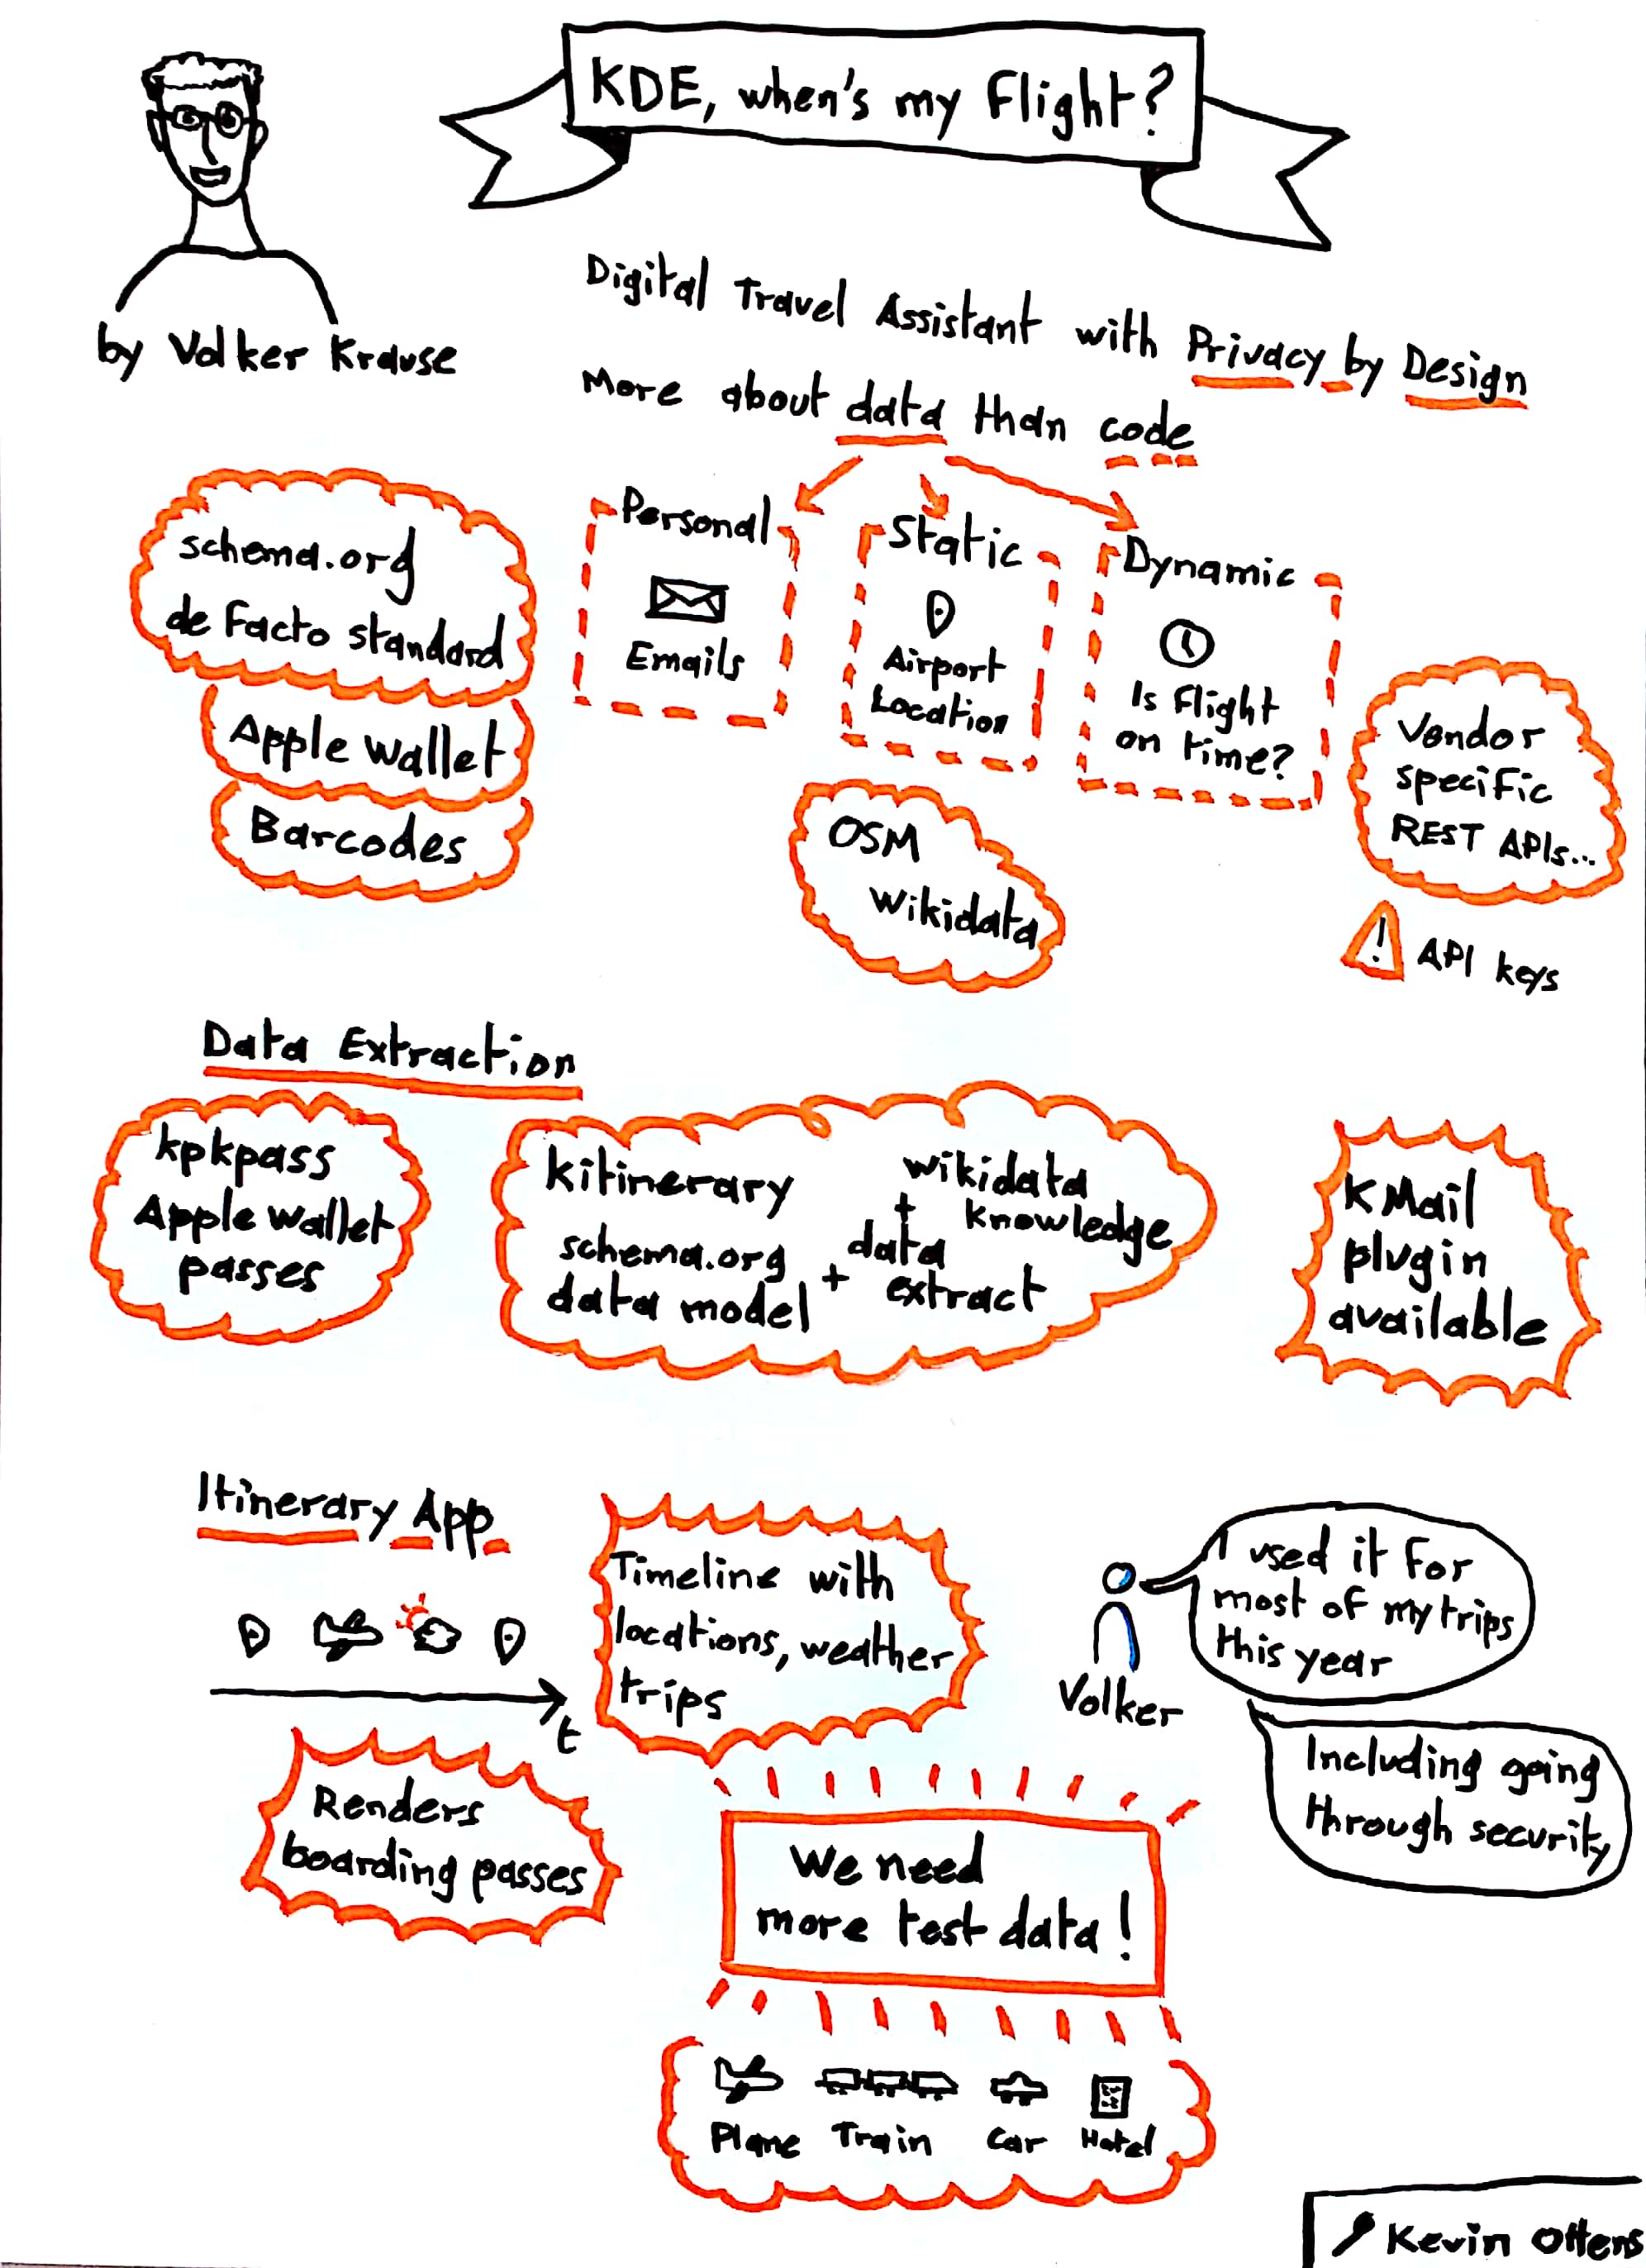 KDE, when's my Flight?
by Volker Krause
Digital Travel Assistant with Privacy by Design
More about data than code
schema.org
de Facto standard
Apple Wallet
Barcodes
Personal
Emails
Static
Airport
Location
Dynamic
Is Flight
on time?
OSM
Wikidata
Vendor
specific
REST APIs...
! API keys
Data Extraction
kpkpass
Apple Wallet
passes
kitinerary
schema.org
data model
+
data
extract
+
wikidata
knowledge
KMail
plugin
available
Itinerary App
t
Timeline with
locations, weather
trips
Renders
boarding passes
Volker
I used it For
most of my trips
this year
Including going
through security
We need
more test data!
Plane Train Car Hotel
Kevin Ottens